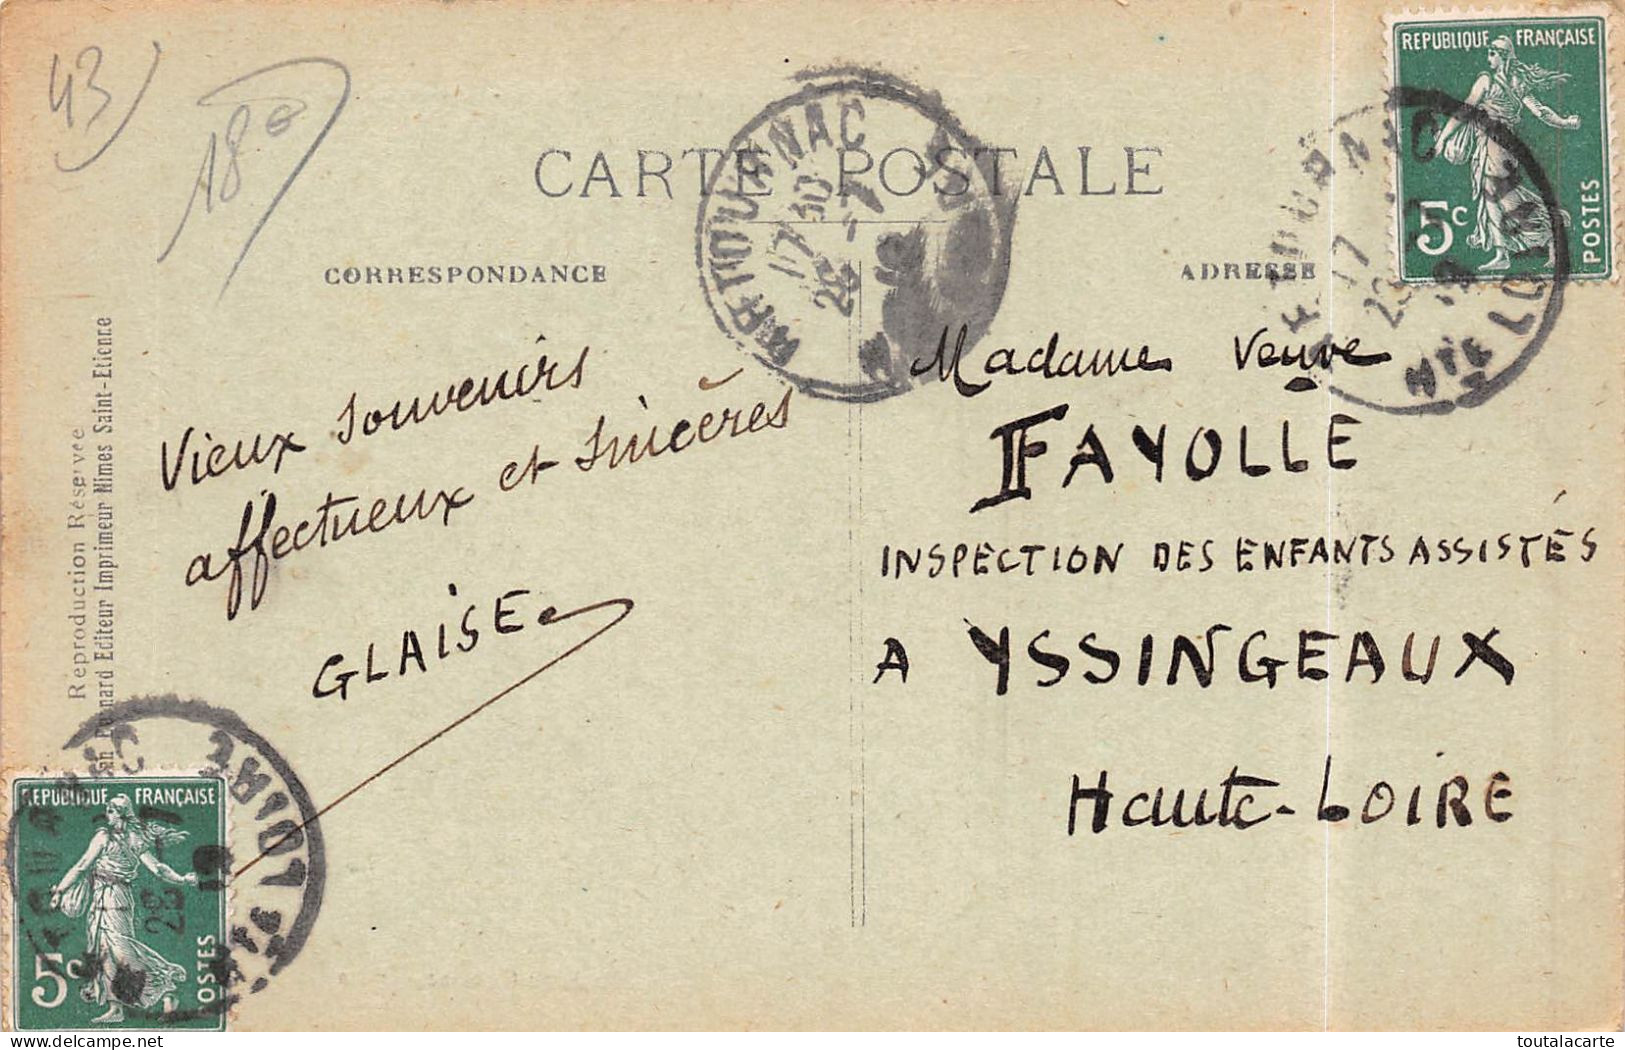 43
18€
CARTE POSTALE
CORRESPONDANCE
ADRESSE
REPUBLIQUE FRANÇAISE
5c
POSTES
17 30
28 -7
HTE LOIRE
Reproduction Réservée
Editeur Imprimeur Nimes Saint-Etienne
Vieux souvenirs
affectueux et sincères
GLAISE
Madame Veuve
FAYOLLE
INSPECTION DES ENFANTS ASSISTÉS
A YSSINGEAUX
Haute-LOIRE
REPUBLIQUE FRANÇAISE
5c
POSTES
28 -7
toutalacarte